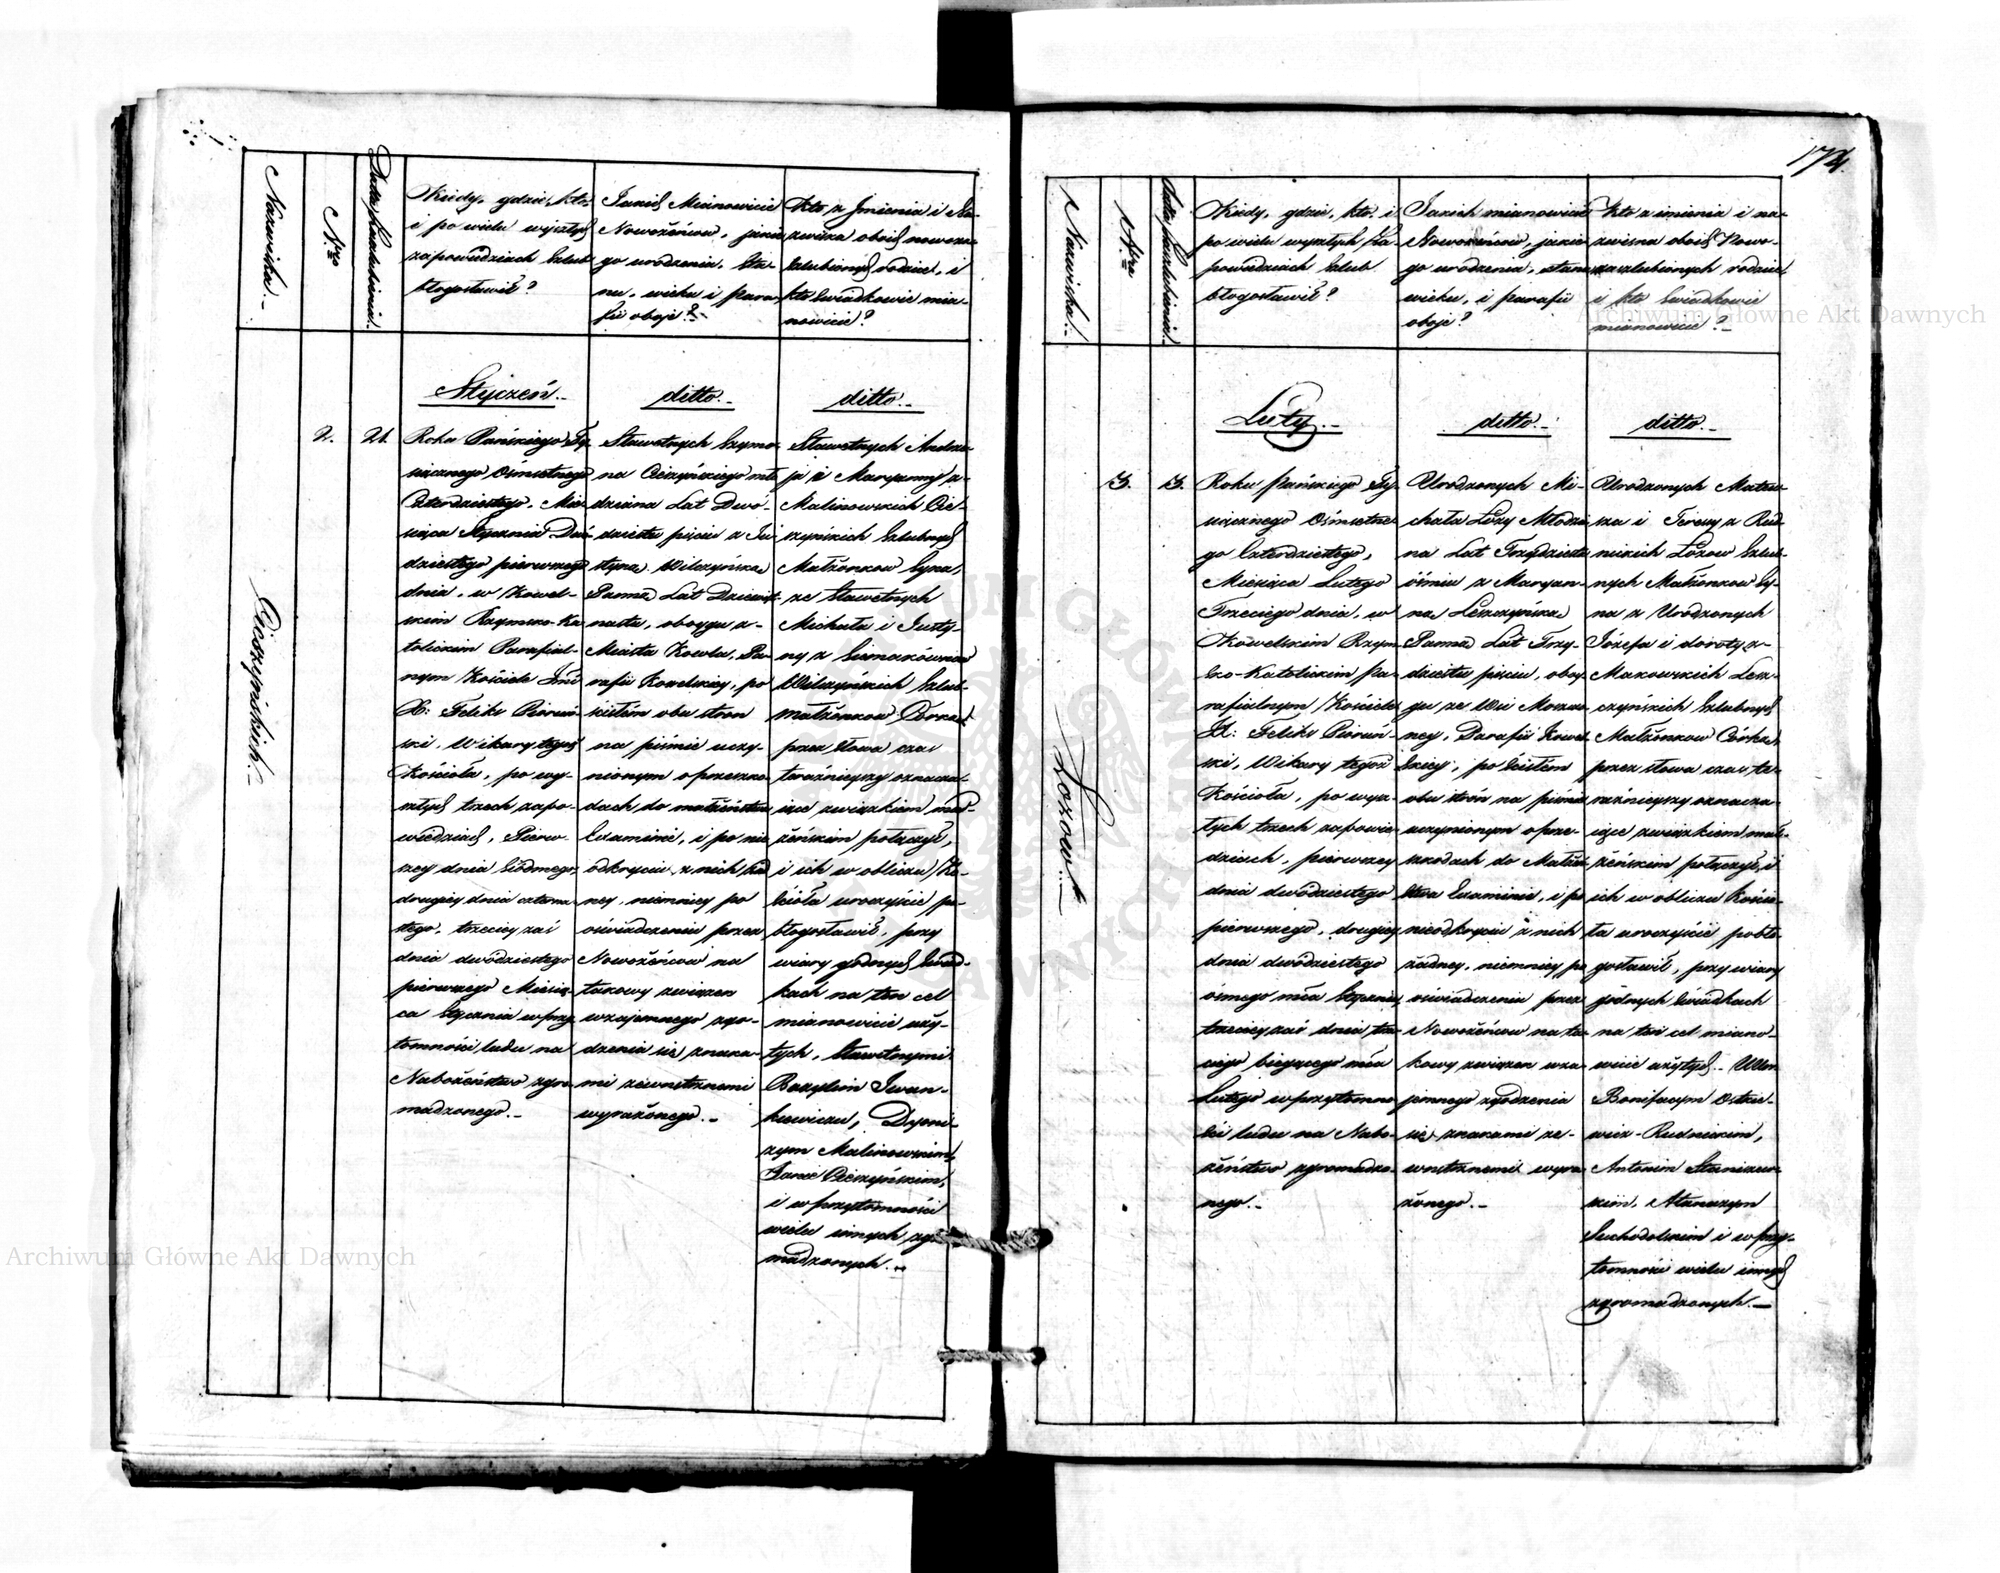 174.
Nazwiska.
Nro
Data Poślubienia.
Kiedy, gdzie, kto
i po wielu wyszłych
zapowiedziach szlub
błogosławił?
Jakich Mianowicie
Nowożeńcow, jakie
go urodzenia, sta-
nu, wieku i para
fii oboje?
Kto z Jmienia i na-
zwiska oboich nowoza-
szlubionych rodzice, i
kto świadkowie mia-
nowicie?
Cieszyńskich.
2.
21.
Styczeń.
Roku Pańskiego Ty-
siącznego Ośmsetnego
Czterdziestego, Mie
siąca Stycznia Dwó
dziestego pierwszego
dnia, w Kowel-
skim Rzymsko-Ka
tolickim Parafial-
nym Kościele Jmć
X: Feliks Pioruń-
ski, Wikary tegoż
Kościoła, po wy-
szłych trzech zapo-
wiedziach, Pierw-
szey dnia siódmego,
drugiey dnia czterna-
stego, trzeciey zaś
dnia dwódziestego
pierwszego Miesią-
ca Stycznia w przy
tomności ludu na
Nabożeństwo zgro
madzonego.
ditto.
Sławetnych Szymo-
na Cieszyńskiego mło
dziana Lat Dwó-
dziestu pięciu z Ju
styną Wilczyńską
Panną Lat Dziewięt
nastu, oboygu z-
Miasta Kowla, Pa-
rafii Kowelskiey, po
ścisłém obu stron
na piśmie uczy-
nionym o przeszko
dach do małżeństwa
Examinie, i po nie
odkryciu z nich żad
ney, niemniey po
oświadczeniu przez
Nowożeńcow na
takowy związek
wzajemnego zgo-
dzenia się znaka-
mi zewnętrznemi
wyrażonego.
ditto.
Sławetnych Andrze-
ja i Maryanny z-
Malinowskich Cie-
szyńskich szlubnych
Małżonkow Syna,
ze Sławetnych
Michała i Justy-
ny z
Wilczyńskich szlub-
małżonkow Córkę
przez słowa czas
teraźnieyszy oznacza-
jące związkiem mał-
żeńskim połączył,
i ich w obliczu Ko-
ścioła uroczyście po-
błogosławił, przy
wiary godnych świad-
kach na ten cel
mianowicie uży-
tych, Sławetnymi
Bazylim Iwan-
kiewiczu, Dyoni-
zym Malinowskim,
Cieszyńskim,
i w przytomności
wielu innych zgro
madzonych.
Nazwiska.
Nro
Data Poślubienia.
Kiedy, gdzie, kto, i
po wielu wyszłych Za-
powiedziach szlub
błogosławił?
Jakich mianowicie
Nowożeńcow, jakie
go urodzenia, stanu
wieku, i parafii
oboje?
Kto z imienia i na-
zwiska oboich Nowo-
zaszlubionych rodzice
i kto świadkowie
mianowicie?
Łozow.
3.
3.
Luty.
Roku Pańskiego Ty-
siącznego Ośmsetne
go Czterdziestego,
Miesiąca Lutego
Trzeciego dnia, w
Kowelskim Rzym
sko-Katolickim Pa-
rafialnym Kościele
X: Feliks Pioruń-
ski, Wikary tegoż
Kościoła, po wysz-
łych trzech zapowie-
dziach, pierwszey
dnia dwódziestego
pierwszego, drugiey
dnia dwódziestego
ósmego mca Stycznia,
trzeciey zaś dnia trze-
ciego bieżącego mca
Lutego w przytomno
ści ludu na Nabo-
żeństwo zgromadzo-
nego.
ditto.
Urodzonych Mi-
chała Łozy Młodzia
na Lat Trzydziestu
óśmiu z Maryan-
ną Leszczyńską
Panną Lat Trzy-
dziestu pięciu, oboy
gu ze Wsi
ney, Parafii Kowel
skiey, po ścisłém
obu stron na piśmie
uczynionym o prze-
szkodach do Małżeń
stwa Examinie, i po
nieodkryciu z nich
żadney, niemniey po
oświadczeniu przez
Nowożeńcow na ta-
kowy związek wza-
jemnego zgodzenia
się znakami ze-
wnętrznemi wyra-
żonego.
ditto.
Urodzonych Mateu-
sza i Teressy z Rud-
nickich Łozow szlub-
nych Małżonkow Sy-
na z Urodzonych
Józefa i doroty z-
Makowskich Lesz-
czyńskich szlubnych
Małżonkow Córką,
przez słowa czas te-
raźnieyszy oznacza-
jące związkiem mał-
żeńskim połączył, i
ich w obliczu Kościo-
ła uroczyście pobło-
gosławił, przy wiary
godnych świadkach
na ten cel miano-
wicie użytych. Ur.
Bonifacym
Rudnickim,
Antonim Staniszew-
skim, Atanazym
Suchodolskim i w przy-
tomności wielu innych
zgromadzonych.
Archiwum Główne Akt Dawnych
Archiwum Główne Akt Dawnych